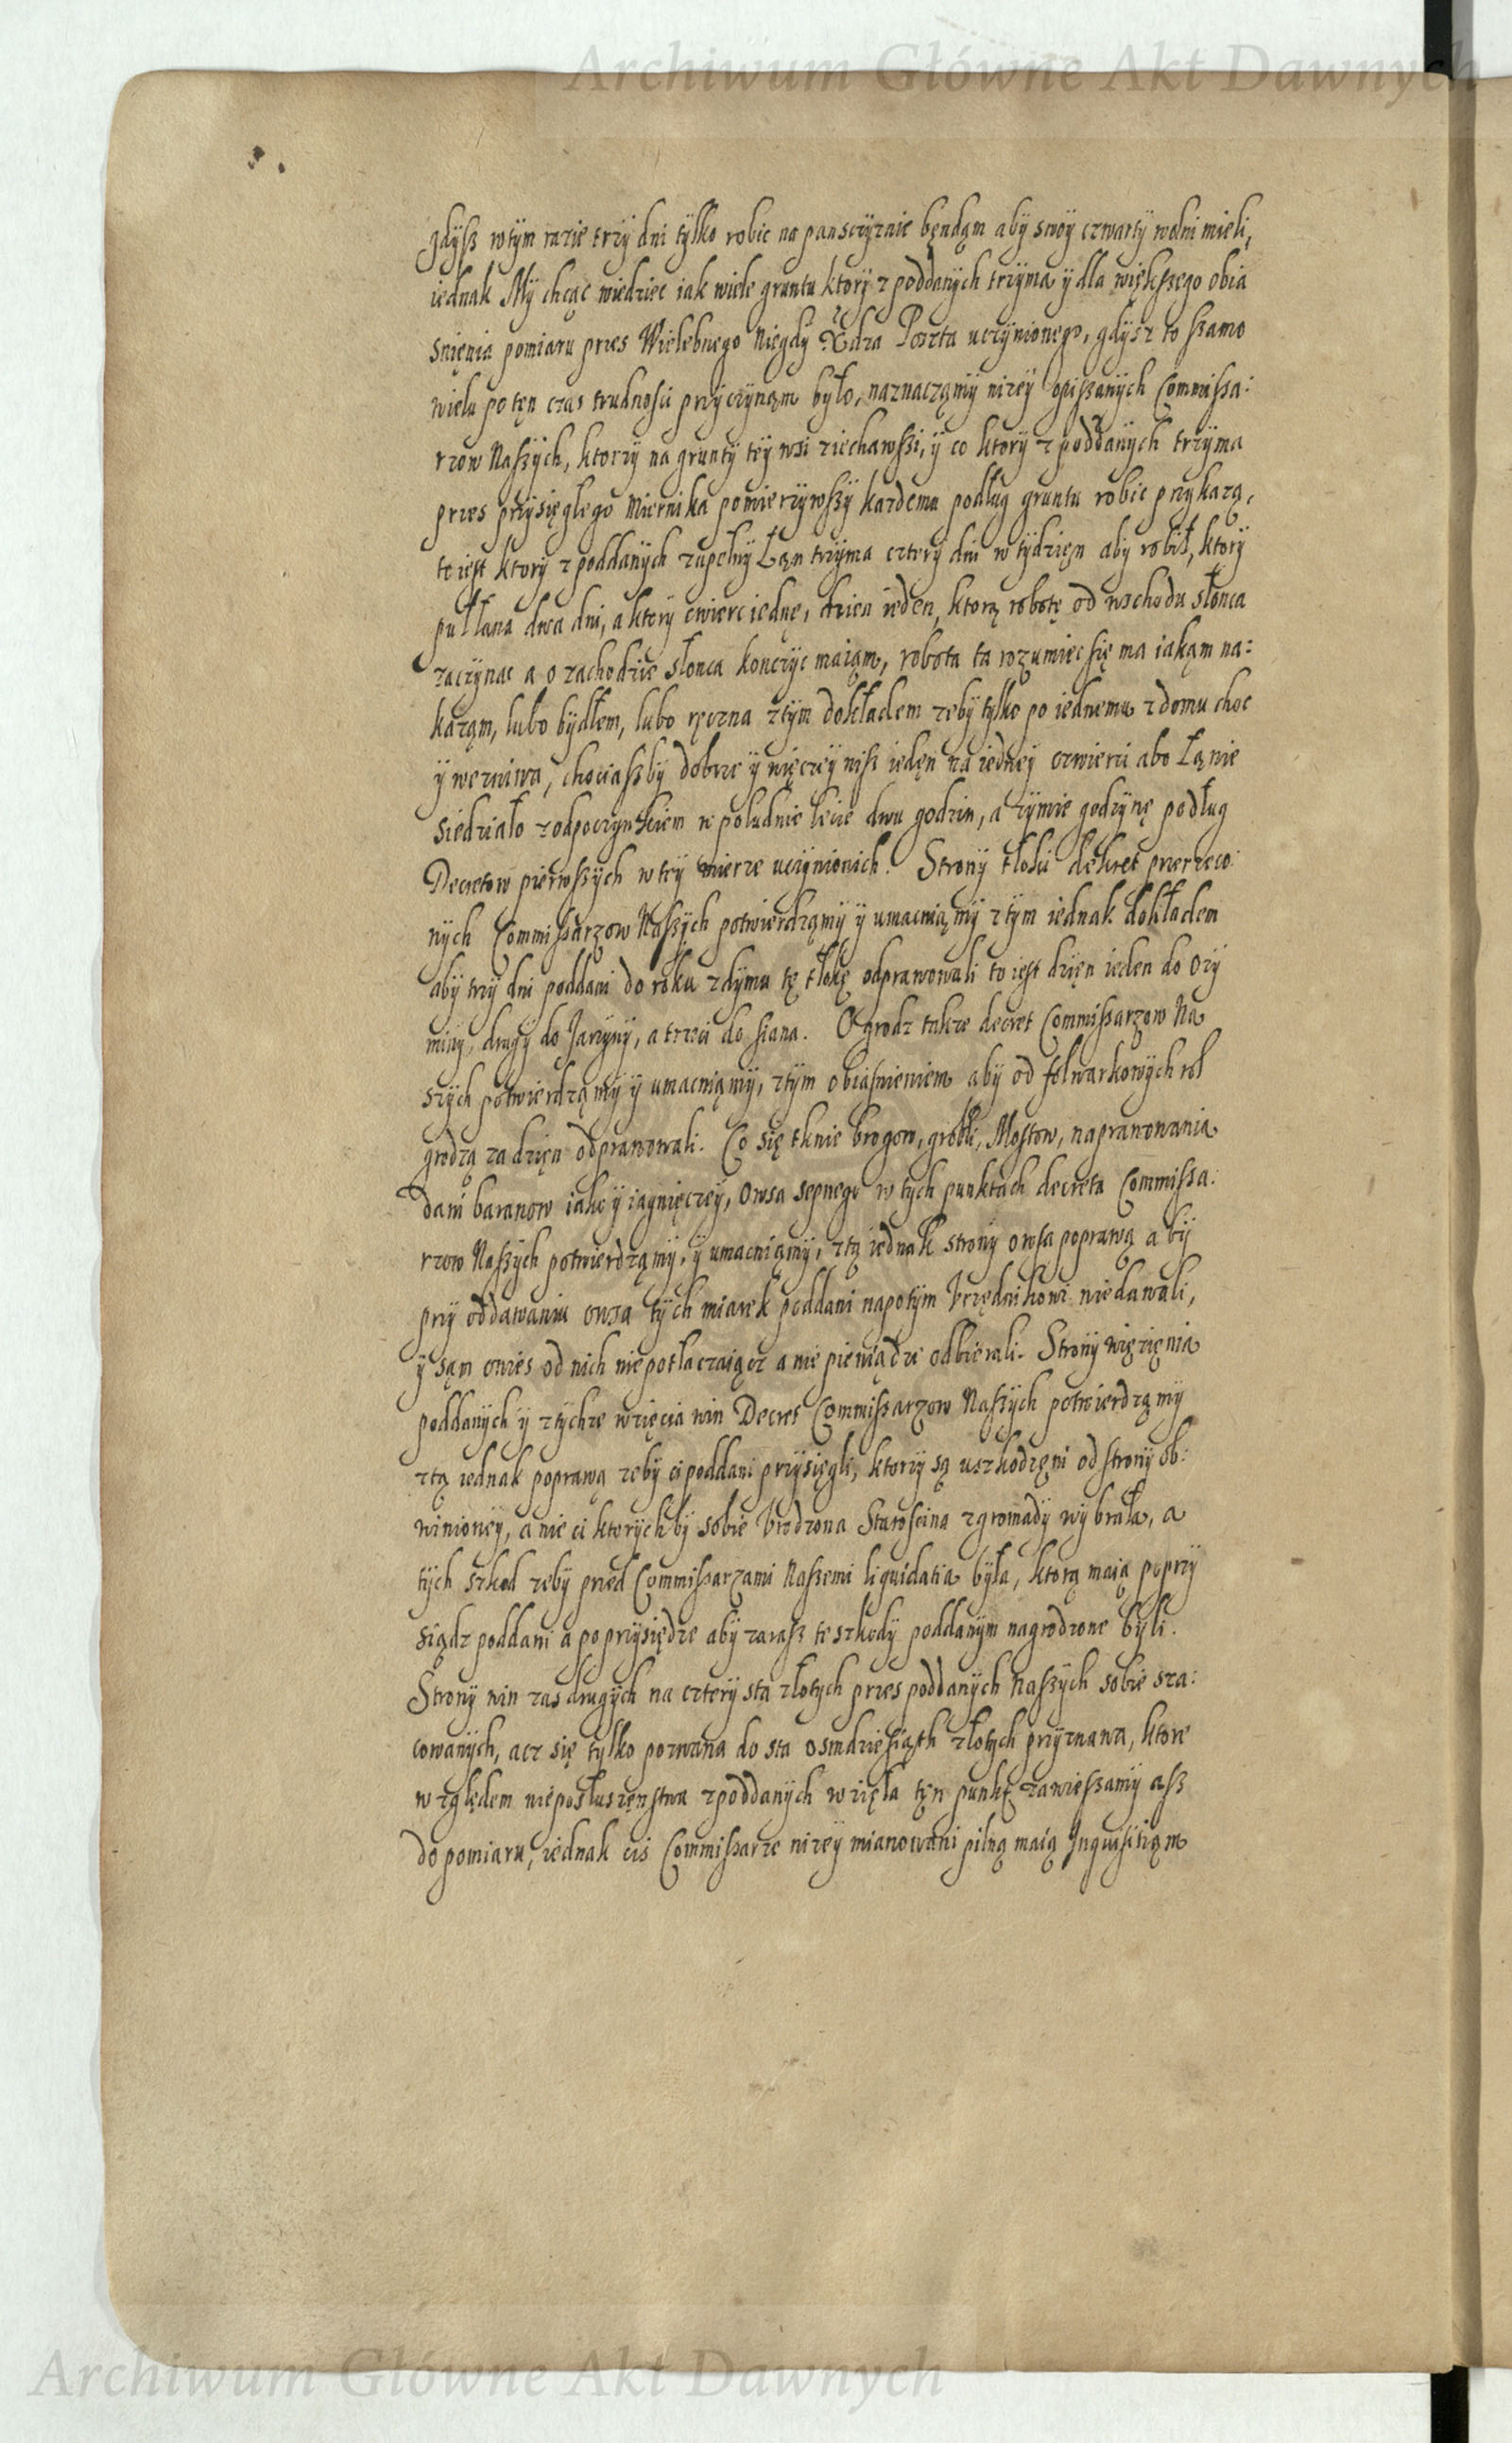 Archiwum Główne Akt Dawnych
gdyß wtym razie trzy dni tylko robic na pansczyznie będąm aby swoy czwarty wolni mieli,
iednak My chcąc wiedziec iak wiele gruntu ktory z poddanych trzyma y dla większego obia
snięnia pomiaru przes Wielebnego Niegdy uczynionego, gdysz to ßamo
wielu po tęn czas trudnosci przyczynąm było, naznacząmy nizey opißanych Commissa:
rzow Naßych, ktorzy na grunty tey wsi ziechawßi, y co ktory z poddanych trzyma
przes przysięglego Miernika pomierzywßy kazdemu podług gruntu robic przykazą,
to iest ktory z poddanych zupelny Łąn trzyma cztery dni w tydzięn aby robił, ktory
puł łana dwa dni, a ktory cwierc iednę, dzien ieden, ktorą robotę od wschodu słonca
zaczynac a o zachodzie słonca konczyc maiąm, robota ta rozumiec się ma iakąm na:
kaząm, lubo bydłem, lubo ręczna z tym dokładem zeby tylko po iednemu z domu choc
y we zniwa, chociaßby dobrze y więczey niß iedęn na iedney czwierci abo Łąnie
siedziało z odpoczynkiem w poludnie lecie dwu godzin, a zymie godzynę podług
Decretow pierwßych w tey mierze uczynionich. Strony tłoki dekret przerzeco:
nych Commissarzow Naßych potwierdząmy y umacniąmy z tym iednak dokładem
aby trzy dni poddani do roku z dymu tę tłokę odprawowali to iest dzięn ieden do ozy
miny, drugy do Jarzyny, a trzeci do siana. O grodz takze decret Commissarzow Na
szych potwierdząmy y umacniąmy, z tym obiasnieniem aby od folwarkowych rol
grodzą za dzięn odprawowali. Co się tknie brogow, grobli, Mostow, naprawowania
dani baranow iako y iagnięczey, Owsa sepnego w tych punktach decreta Commissa:
rzow Naßych potwierdząmy, y umacniąmy, z tą iednak strony owsa poprawą aby
przy oddawaniu owsa tych miarek poddani napotym Vrzędnikowi niedawali,
y sąm owies od nich niepotłaczaiącz a nie pieniądze odbierali. Strony więzięnia
poddanych y z tychze wzięcia win Decret Commissarzow Naßych potwierdząmy
z tą iednak poprawą zeby ci poddani przysięgli, ktorzy są uszkodzęni od strony ob:
winioney, a nie ci ktorych by sobie Vrodzona Staroscina z gromady wybrała, a
tych szkod zeby przed Commissarzami Naßemi liquidatia była, ktorą maią poprzy
siądz poddani a po przysiędze aby zaraß te szkody poddanym nagrodzone byli.
Strony win zas drugych na cztery sta złotych przes poddanych Naßych sobie sza:
cowanych, acz się tylko pozwana do sta osmdziesiąth złotych przyznawa, ktore
w zględem nieposłuszęnstwa z poddanych wzięła tęn punkt zawießamy aß
do pomiaru, iednak cis Commissarze nizey mianowani pilną maią Inquisitiąm
Archiwum Główne Akt Dawnych